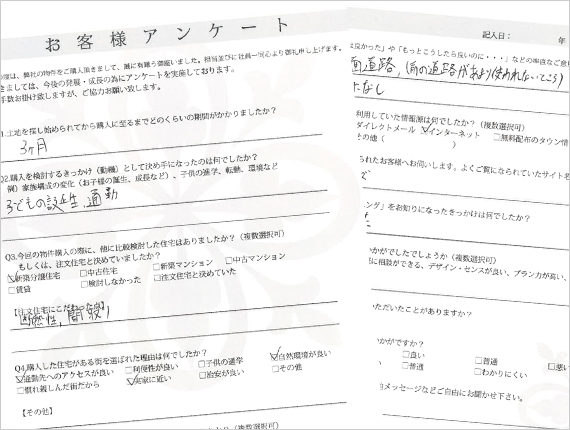 お客様アンケート
の度は、弊社の物件をご購入頂きまして、誠に有難う御座いました。担当並びに社員一同心より御礼申し上げます。
きましては、今後の発展・成長の為にアンケートを実施しております。
手数お掛け致しますが、ご協力お願い致します。
1.土地を探し始められてから購入に至るまでどのくらいの期間がかかりましたか？
3ヶ月
Q2.購入を検討するきっかけ（動機）として決め手になったのは何でしたか？
例）家族構成の変化（お子様の誕生、成長など）、子供の進学、転勤、環境など
子どもの誕生 通勤
Q3.今回の物件購入の際に、他に比較検討した住宅はありましたか？（複数選択可）
もしくは、注文住宅と決めていましたか？
☑新築分譲住宅 □中古住宅 □新築マンション □中古マンション
□賃貸 □検討しなかった □注文住宅と決めていた
【注文住宅にこだわった点】
断熱性，間取り
Q4.購入した住宅がある街を選ばれた理由は何でしたか？
☑通勤先へのアクセスが良い □利便性が良い □子供の進学 ☑自然環境が良い
□慣れ親しんだ街だから ☑実家に近い □治安が良い □その他
【その他】
（複数選択可）
記入日： 年
良かった」や「もっとこうしたら良いのに・・・」などの率直なご意
面道路，(前の道路があまり使われないところ)
になし
利用していた情報源は何でしたか？（複数選択可）
ダイレクトメール ☑インターネット □無料配布のタウン情
その他（ ）
られたお客様へお伺いします。よくご覧になられていたサイト名
ング」をお知りになったきっかけは何でしたか？
いかがでしたでしょうか（複数選択可）
に相談ができる、デザイン・センスが良い、プラン力が高い、
いただいたことがありますか？
いかがですか？
□良い □普通 □悪い
□普通 □わかりにくい
メッセージなどご自由にお聞かせ下さい。